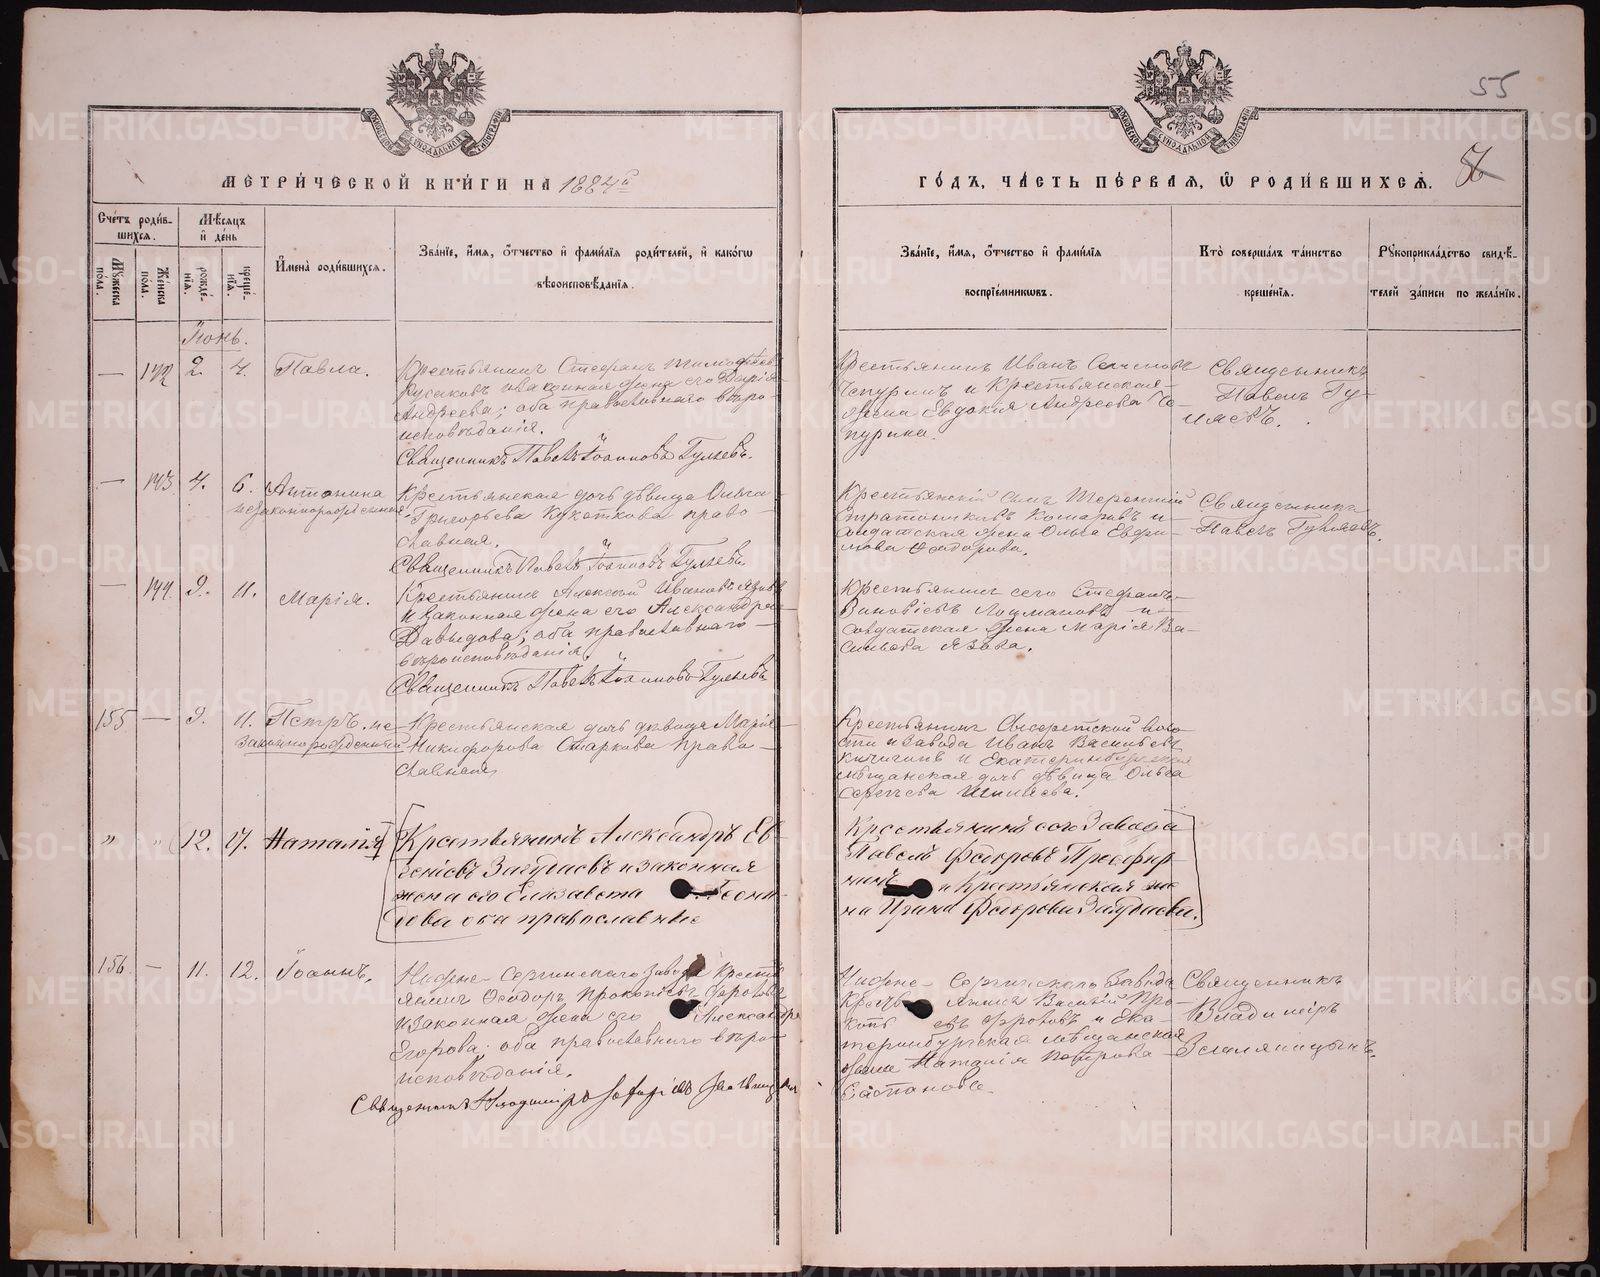 55
56
МЕТРИ́ЧЕСКОЙ КНИ́ГИ НА 1884й
ГО́ДЪ, ЧА́СТЬ ПЕ́РВАЯ, Ѡ РОДИ́ВШИХСѦ.
Сче́тъ роди́в-
шихсѧ.
Мꙋ́жеска по́ла.
Же́нска по́ла.
Мѣ́сѧцъ и де́нь
рожде́нїѧ.
креще́нїѧ.
И҆мена̀ роди́вшихсѧ.
Зва́нїе, и҆́мѧ, ѻ҆́тчество и҆ фами́лїѧ роди́телей, и҆ како́гѡ
вѣроисповѣ́данїѧ.
Зва́нїе, и҆́мѧ, ѻ҆́тчество и҆ фами́лїѧ
воспрїе́мникѡвъ.
Кто̀ соверша́лъ та́инство
креще́нїѧ.
Рꙋкоприкла́дство свидѣ́-
телей за́писи по жела́нїю.
Іюнь.
— 2. 4. Павла.
Крестьянинъ Стефанъ Тимофѣевъ
Русаковъ и законная жена его Дарія
Андреева; оба православнаго вѣро-
исповѣданія.
Священникъ Павелъ Іоанновъ Гуляевъ.
Крестьянинъ Иванъ
и Крестьянская
жена Евдокия Андреева Че-
пурина.
Священникъ
Павелъ Гу-
ляевъ.
— 4. 6. Антонина
незаконнорожденная
Крестьянская дочь дѣвица Ольга
Григорьева Кукоткова право-
славная.
Священникъ Павелъ Іоанновъ Гуляевъ.
Крестьянскій сынъ Терентий
Комаровъ и
солдатская жена Ольга Евфи-
мова Федорова.
Священникъ
Павелъ Гуляевъ.
— 9. 11. Марія.
Крестьянинъ Алексѣй Ивановъ Язовъ
и законная жена его Александра
Давыдова; оба православнаго
вѣроисповѣданія.
Священникъ Павелъ Іоанновъ Гуляевъ
Крестьянинъ сего Стефанъ
Зиновіевъ Лоцмановъ и
солдатская жена Марія Ва-
сильева Язова.
155 — 9. 11. Петръ. не-
законнорожденный
Крестьянская дочь дѣвица Марія
Никифорова Старкова право-
славная
Крестьянинъ Сысертской воло-
сти и завода Иванъ Васильевъ
Кичигинъ и Екатеринбургская
мѣщанская дочь дѣвица Ольга
Сергѣева
" " 12. 17. Наталія
Крестьянинъ Александръ Ев-
геніевъ Загудаевъ и законная
жена его Елизавета Леони-
дова оба православные
Крестьянинъ сего Завода
Павелъ Федоровъ
и Крестьянская же-
на Ирина Федорова Загудаева.
156 — 11. 12. Іоаннъ.
Нижне-Сергинскаго Завода Кресть-
янинъ Феодоръ Прокопіевъ Фроловъ
и законная жена его Александра
Егорова. оба православнаго вѣро-
исповѣданія.
Священникъ Владиміръ Захаріевъ Земляницынъ
Нижне-Сергинскаго Завода
Крестьянинъ Василій Про-
копьевъ Фроловъ и Ека-
теринбургская мѣщанская
жена Наталія Петрова
Священникъ
Владиміръ
Земляницынъ.